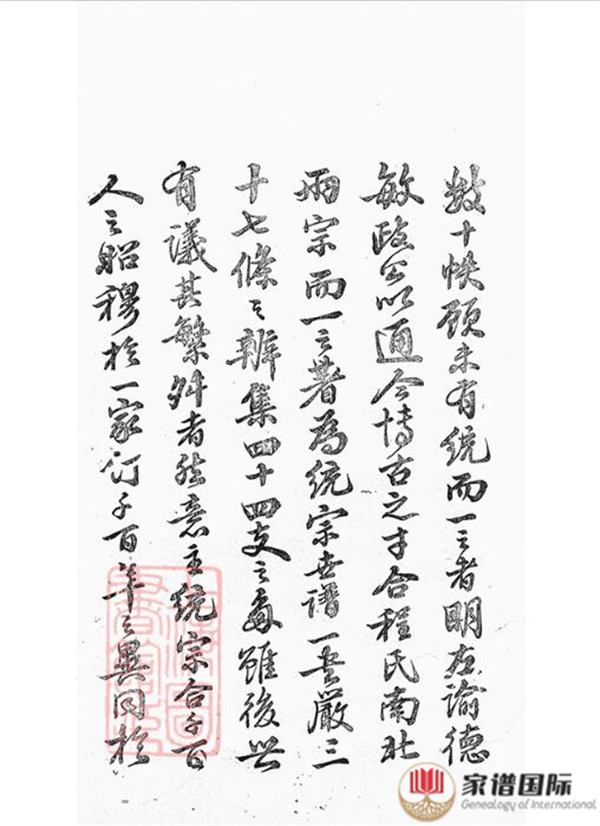 數十帙顧未有統而一之者明左諭德
敏政公以通今博古之才合程氏南北
兩宗而一之著為統宗世譜一書嚴三
十七條之辨集四十四支之	雖後世
有議其繁舛者然意主統宗合千百
人之昭穆於一家訂千百年之異同於
家谱国际
Genealogy of International